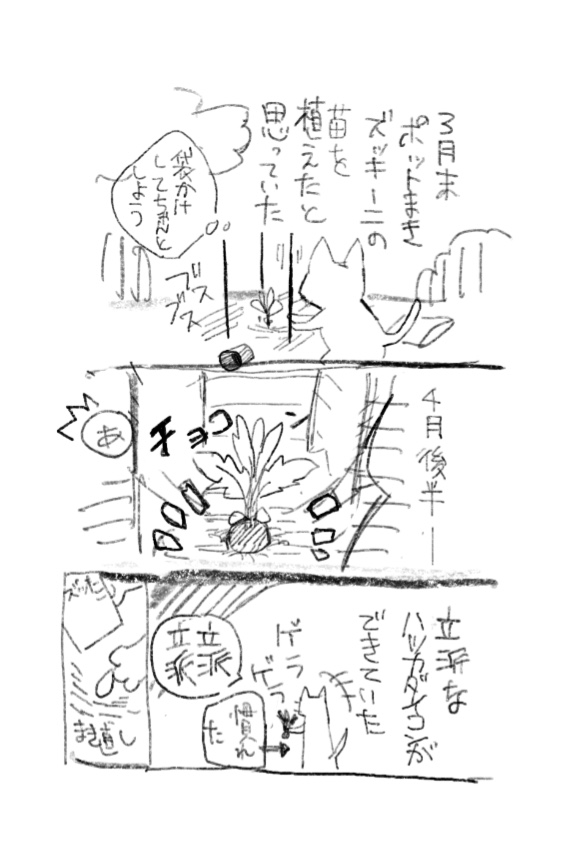 3月末
ポットまき
ズッキーニの
苗を
植えたと
思っていた
袋かけ
してちゃんと
しよう
ブス
ブス
4月後半
チョコン
コロロ
あ
立派な
ハツカダイコンが
できていた
ゲラ
ゲラ
立派
立派
慣れ
た
ズッキーニ
まき直し